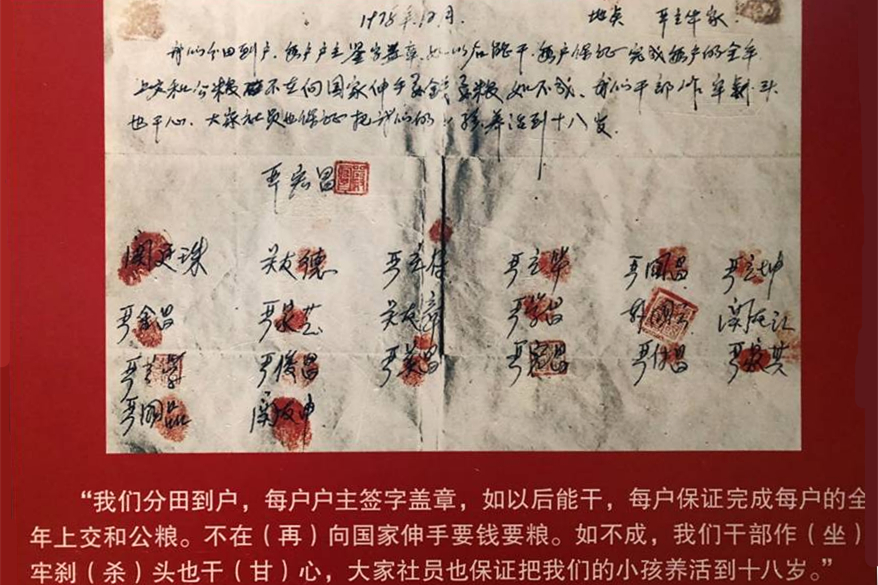 1978年12月. 地点 严立华家
我们分田到户，每户户主签字盖章，如以后能干，每户保证完成每户的全年
上交和公粮 不在向国家伸手要钱要粮 如不成、我们干部作牢刹头
也干心、大家社员也保证把我们的小孩养活到十八岁.
严宏昌
关廷珠 关友德 严立符 严立华 严国昌 严立坤
严金昌 严家芝 关友章 严学昌 韩国云 关友江
严立学 严俊昌 严美昌 严宏昌 严付昌 严家其
严国品 关友申
“我们分田到户，每户户主签字盖章，如以后能干，每户保证完成每户的全
年上交和公粮。不在（再）向国家伸手要钱要粮。如不成，我们干部作（坐）
牢刹（杀）头也干（甘）心，大家社员也保证把我们的小孩养活到十八岁。”